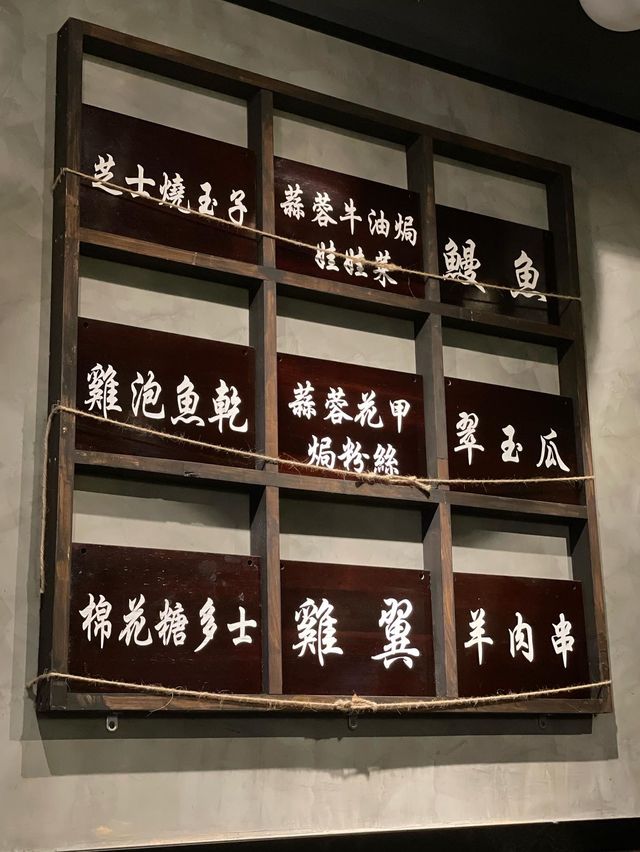 芝士燒玉子
蒜蓉牛油焗
娃娃菜
鰻魚
雞泡魚乾
蒜蓉花甲
焗粉絲
翠玉瓜
棉花糖多士
雞翼
羊肉串